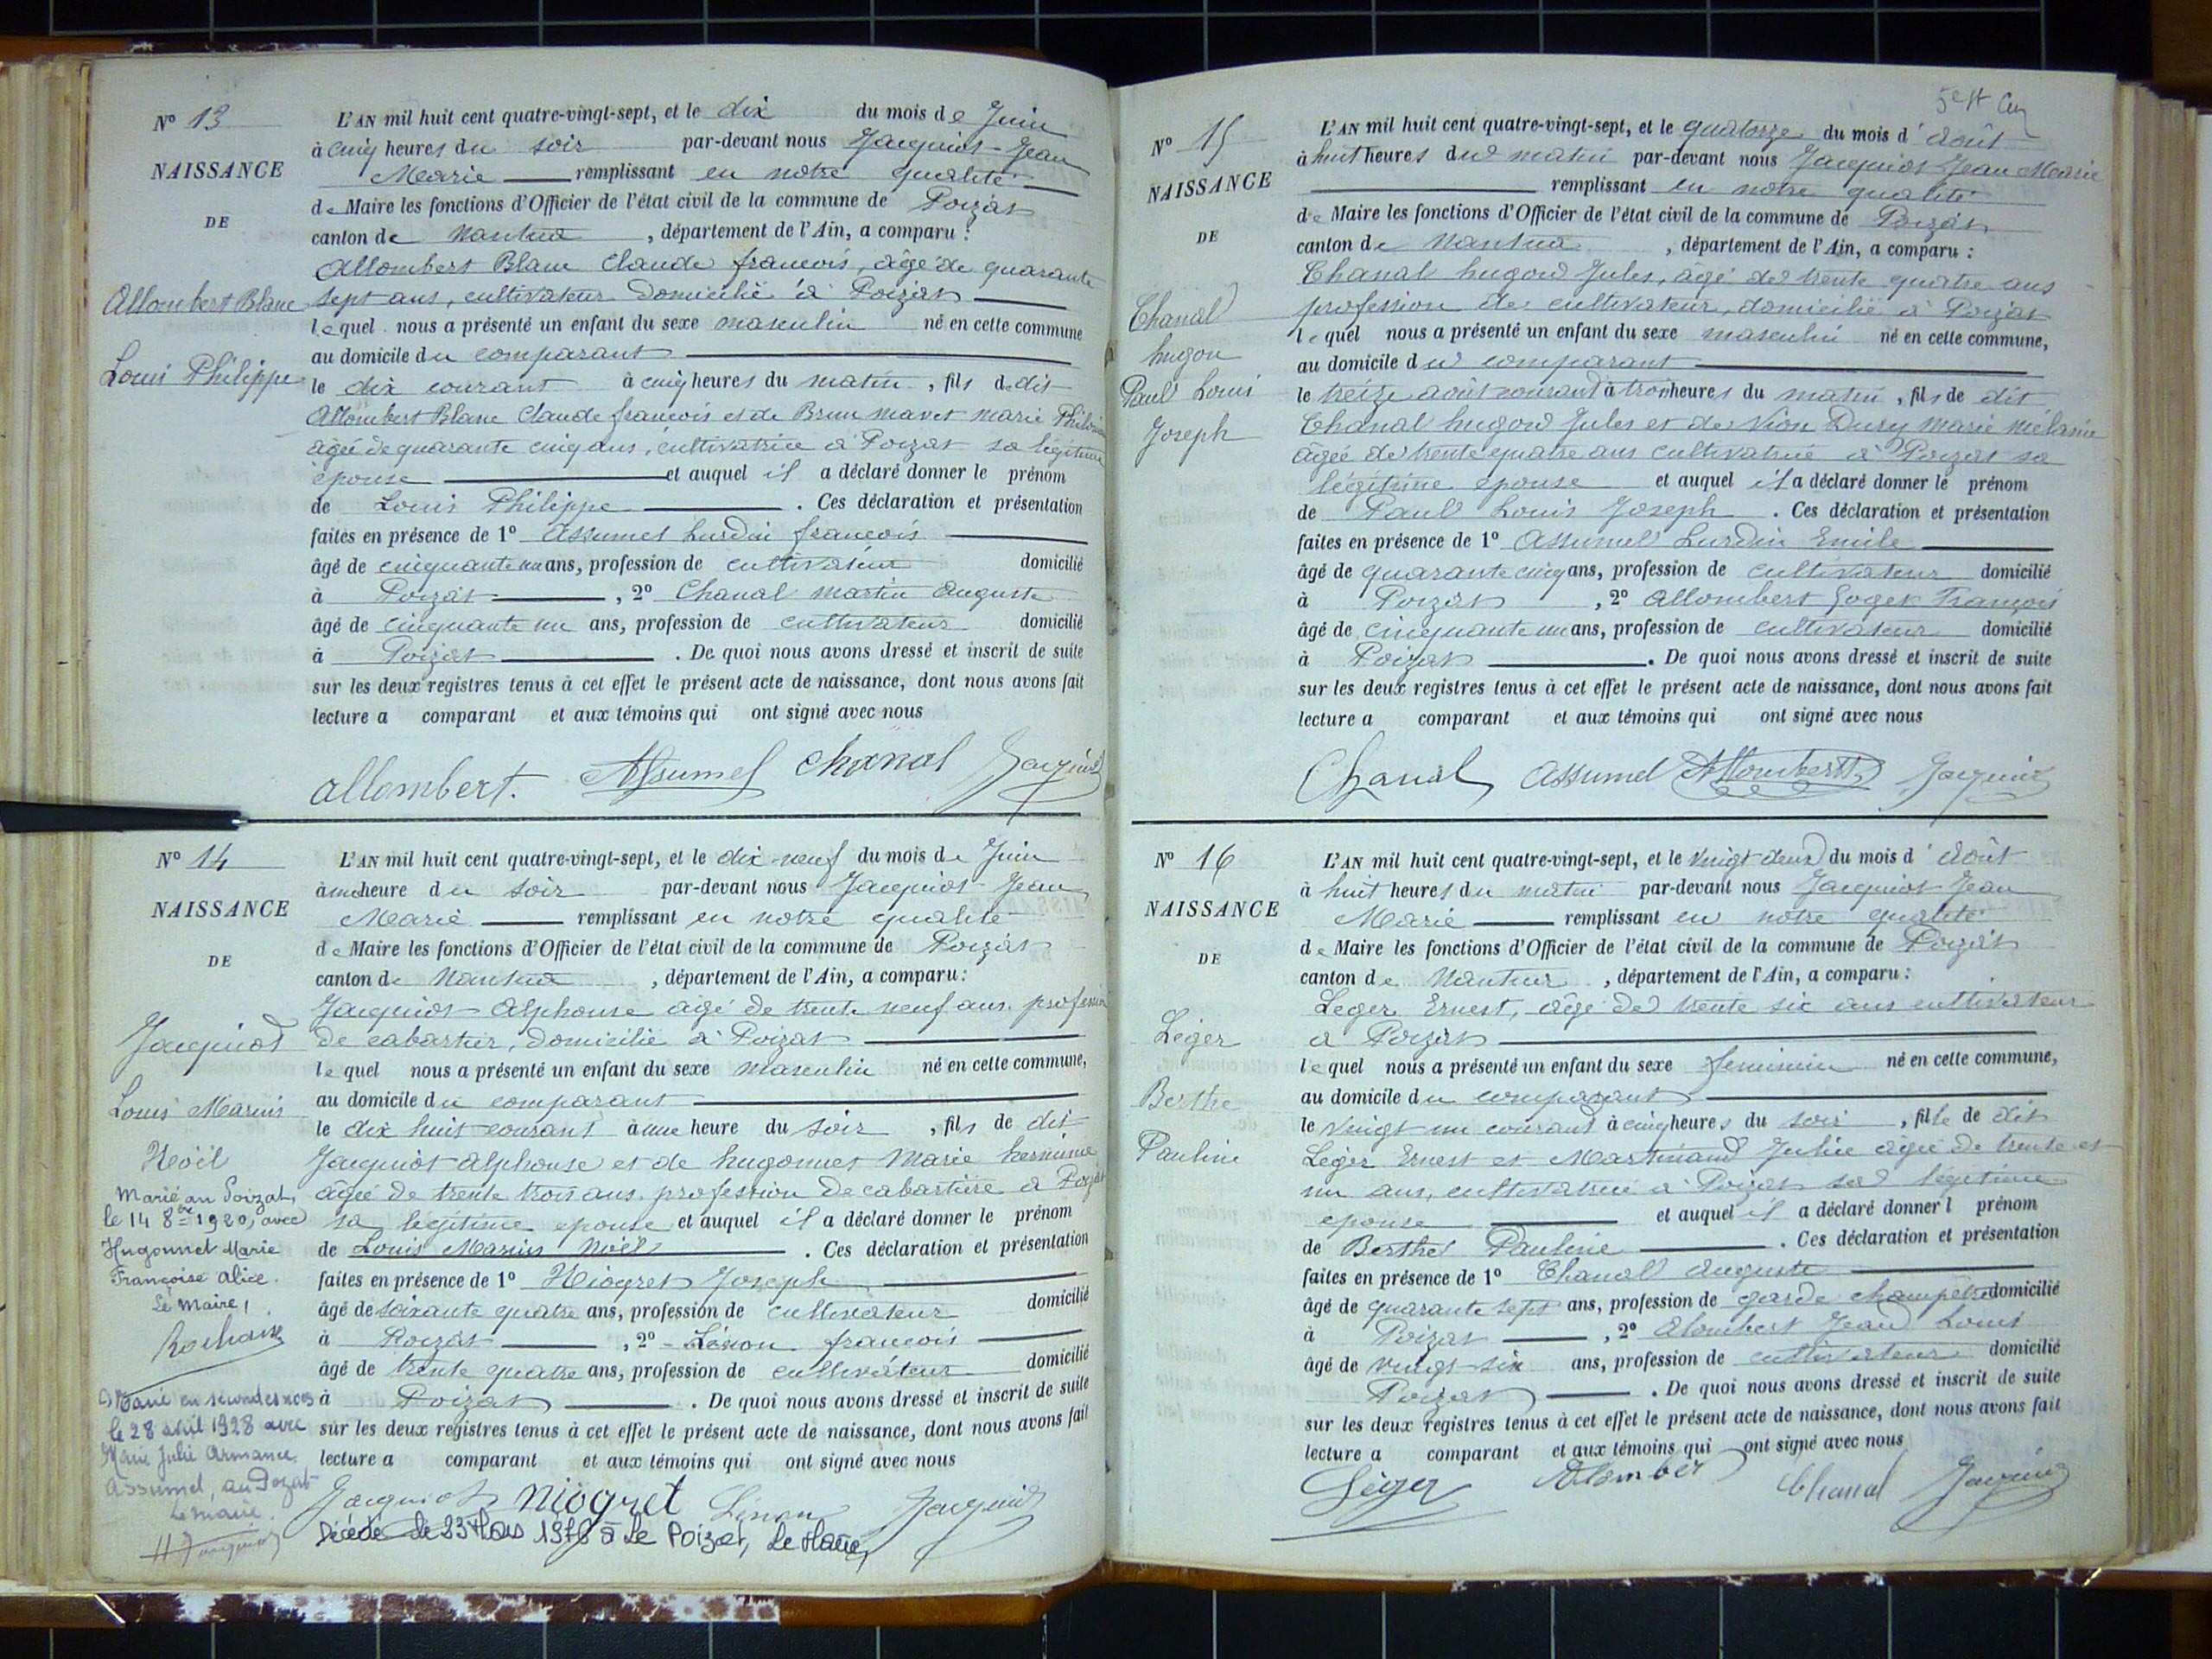 Nº 13
NAISSANCE
DE
Allombert Blanc
Louis Philippe
L'AN mil huit cent quatre-vingt-sept, et le dix du mois de Juin
à cinq heures du soir par-devant nous Jacquiot Jean
Marie remplissant en notre qualité
de Maire les fonctions d'Officier de l'état civil de la commune de Poizat
canton de Nantua, département de l'Ain, a comparu :
Allombert Blanc Claude françois, âgé de quarante
sept ans, cultivateur domicilié à Poizat
lequel nous a présenté un enfant du sexe masculin né en cette commune
au domicile du comparant
le dix courant à cinq heures du matin, fils de dit
Allombert Blanc Claude françois et de Brun mavet marie
âgée de quarante cinq ans, cultivatrice à Poizat sa légitime
épouse et auquel il a déclaré donner le prénom
de Louis Philippe. Ces déclaration et présentation
faites en présence de 1º Assumel lurdin françois
âgé de cinquante un ans, profession de cultivateur domicilié
à Poizat, 2º Chanal martin Auguste
âgé de cinquante un ans, profession de cultivateur domicilié
à Poizat. De quoi nous avons dressé et inscrit de suite
sur les deux registres tenus à cet effet le présent acte de naissance, dont nous avons fait
lecture a comparant et aux témoins qui ont signé avec nous
allombert. Assumel chanal Jacquiot
Nº 14
NAISSANCE
DE
Jacquiot
Louis Marius
Noël
Marié au Poizat,
le 14 8bre 1920, avec
Hugonnet Marie
Françoise Alice.
Le Maire,
Marié en secondes noces
le 28 avril 1928 avec
Marie Julie Armance
Assumel, au Poizat
Le maire.
L'AN mil huit cent quatre-vingt-sept, et le dix-neuf du mois de Juin
à une heure du soir par-devant nous Jacquiot Jean
Marie remplissant en notre qualité
de Maire les fonctions d'Officier de l'état civil de la commune de Poizat
canton de Nantua, département de l'Ain, a comparu :
Jacquiot Alphonse âgé de trente neuf ans, profession
de cabartier, domicilié à Poizat
lequel nous a présenté un enfant du sexe masculin né en cette commune,
au domicile du comparant
le dix huit courant à une heure du soir, fils de dit
Jacquiot Alphonse et de hugonnet Marie hermine
âgée de trente trois ans, profession de cabartière à Poizat
sa légitime épouse et auquel il a déclaré donner le prénom
de Louis Marius Noël. Ces déclaration et présentation
faites en présence de 1º Niogret Joseph
âgé de soixante quatre ans, profession de cultivateur domicilié
à Poizat, 2º françois
âgé de trente quatre ans, profession de cultivateur domicilié
à Poizat. De quoi nous avons dressé et inscrit de suite
sur les deux registres tenus à cet effet le présent acte de naissance, dont nous avons fait
lecture a comparant et aux témoins qui ont signé avec nous
Jacquiot Niogret Jacquiot
Décédé le 23 Mars à Le Poizat, Le Maire,
Nº 15
NAISSANCE
DE
Chanal
hugon
Paul Louis
Joseph
L'AN mil huit cent quatre-vingt-sept, et le quatorze du mois d'août
à huit heures du matin par-devant nous Jacquiot Jean Marie
remplissant en notre qualité
de Maire les fonctions d'Officier de l'état civil de la commune de Poizat
canton de Nantua, département de l'Ain, a comparu :
Chanal hugon Jules, âgé de trente quatre ans
profession de cultivateur, domicilié à Poizat
lequel nous a présenté un enfant du sexe masculin né en cette commune,
au domicile du comparant
le treize août courant à trois heures du matin, fils de dit
Chanal hugon Jules et de Vion Dury marie mélanie
âgée de trente quatre ans cultivatrice à Poizat sa
légitime épouse et auquel il a déclaré donner le prénom
de Paul Louis Joseph. Ces déclaration et présentation
faites en présence de 1º Assumel Lurdin Emile
âgé de quarante cinq ans, profession de cultivateur domicilié
à Poizat, 2º Allombert Goget François
âgé de cinquante un ans, profession de cultivateur domicilié
à Poizat. De quoi nous avons dressé et inscrit de suite
sur les deux registres tenus à cet effet le présent acte de naissance, dont nous avons fait
lecture a comparant et aux témoins qui ont signé avec nous
Chanal Assumel Allombert Jacquiot
Nº 16
NAISSANCE
DE
Léger
Berthe
Pauline
L'AN mil huit cent quatre-vingt-sept, et le vingt deux du mois d'août
à huit heures du matin par-devant nous Jacquiot Jean
Marie remplissant en notre qualité
de Maire les fonctions d'Officier de l'état civil de la commune de Poizat
canton de Nantua, département de l'Ain, a comparu :
Léger Ernest, âgé de trente six ans cultivateur
à Poizat
lequel nous a présenté un enfant du sexe feminin né en cette commune,
au domicile du comparant
le vingt un courant à cinq heures du soir, fille de dit
Léger Ernest et Martinand Julie âgée de trente et
un ans, cultivatrice à Poizat sa légitime
épouse et auquel il a déclaré donner l prénom
de Berthe Pauline. Ces déclaration et présentation
faites en présence de 1º Chanal Auguste
âgé de quarante sept ans, profession de garde champêtre domicilié
à Poizat, 2º Alombert Jean Louis
âgé de vingt-six ans, profession de cultivateur domicilié
Poizat. De quoi nous avons dressé et inscrit de suite
sur les deux registres tenus à cet effet le présent acte de naissance, dont nous avons fait
lecture a comparant et aux témoins qui ont signé avec nous
Léger Alomber Chanal Jacquiot